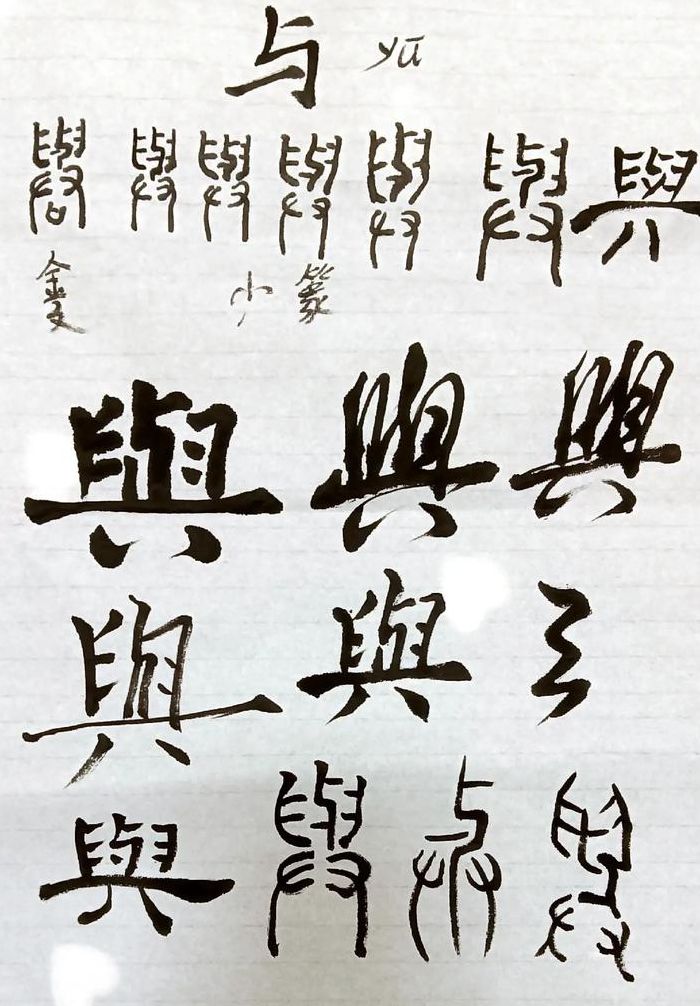 与 yǔ
與 與 與 與 與 與 與
金文 小篆
與 與 與
與 與 与
與 與 与 與